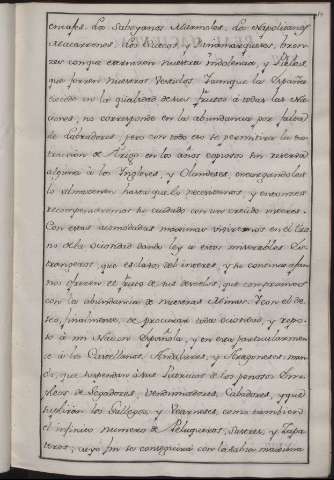 encajes. Los Saboyanos Marmoles. Los Napolitanos
Macarrones. Los Suecos, y Dinamarqueses, bron-
ces con que eternizen nuestra indolencia, y Pieles
que forren nuestros Vestidos. Y aunque la España
excede en la qualidad de sus frutos à todas las Na-
ciones, no corresponde en la abundancia por falta
de Labradores, pero con todo eso se permitirá la ex-
traccion de Trigo en los años copiosos sin reserva
alguna à los Yngleses, y Olandeses, encargandoles
lo almacenen hasta que lo necesitemos, y entonces
recompensaremos su cuidado con un crecido interes.
Con estas acomodadas maximas viviremos en el Cen-
tro de la Ociosidad dando ley à estos miserables Es-
trangeros, que esclavos del interes, y su continuo afan
nos ofrecen el fruto de sus desvelos, que compramos
con la abundancia de nuestras Minas. Y con el de-
seo, finalmente, de procurar esta ociosidad, y repo-
so à mi Nacion Española, y en esta particularmen-
te à los Castellanos, Andaluces, y Aragoneses, man-
do, que suspendan à sus Patricios de los penosos Em-
pleos de Segadores, Vendimiadores, Cabadores, y que
suplirán los Gallegos, y Bearneses, como tambien
el infinito numero de Peluqueros, Sastres, y Zapa-
teros; cuyo fin se conseguirá con la sabia maxima